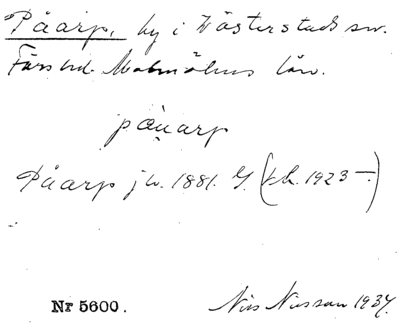 Påarp, by i Västerstads sn.
Färs hd. Malmöhus län.
påuarp
Påarp jw. 1881. G. (fr. 1923 –)
Nr 5600.
Nils Nilsson 1937.